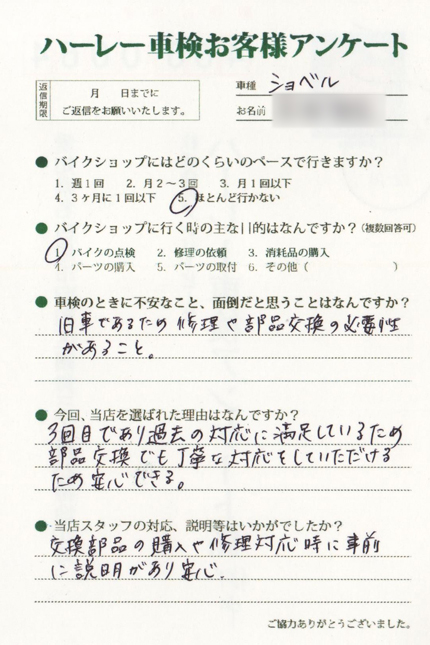 ハーレー車検お客様アンケート
返信期限
月　　日までに
ご返信をお願いいたします。
車種 ショベル
お名前
● バイクショップにはどのくらいのペースで行きますか？
1. 週1回　2. 月2～3回　3. 月1回以下
4. 3ヶ月に1回以下　5. ほとんど行かない
● バイクショップに行く時の主な目的はなんですか？（複数回答可）
1. バイクの点検　2. 修理の依頼　3. 消耗品の購入
4. パーツの購入　5. パーツの取付　6. その他（　　　　　　）
● 車検のときに不安なこと、面倒だと思うことはなんですか？
旧車であるため修理や部品交換の必要性
があること。
● 今回、当店を選ばれた理由はなんですか？
3回目であり過去の対応に満足しているため
部品交換でも丁寧な対応をしていただける
ため安心できる。
● 当店スタッフの対応、説明等はいかがでしたか？
交換部品の購入や修理対応時に事前
に説明があり安心.
ご協力ありがとうございました。